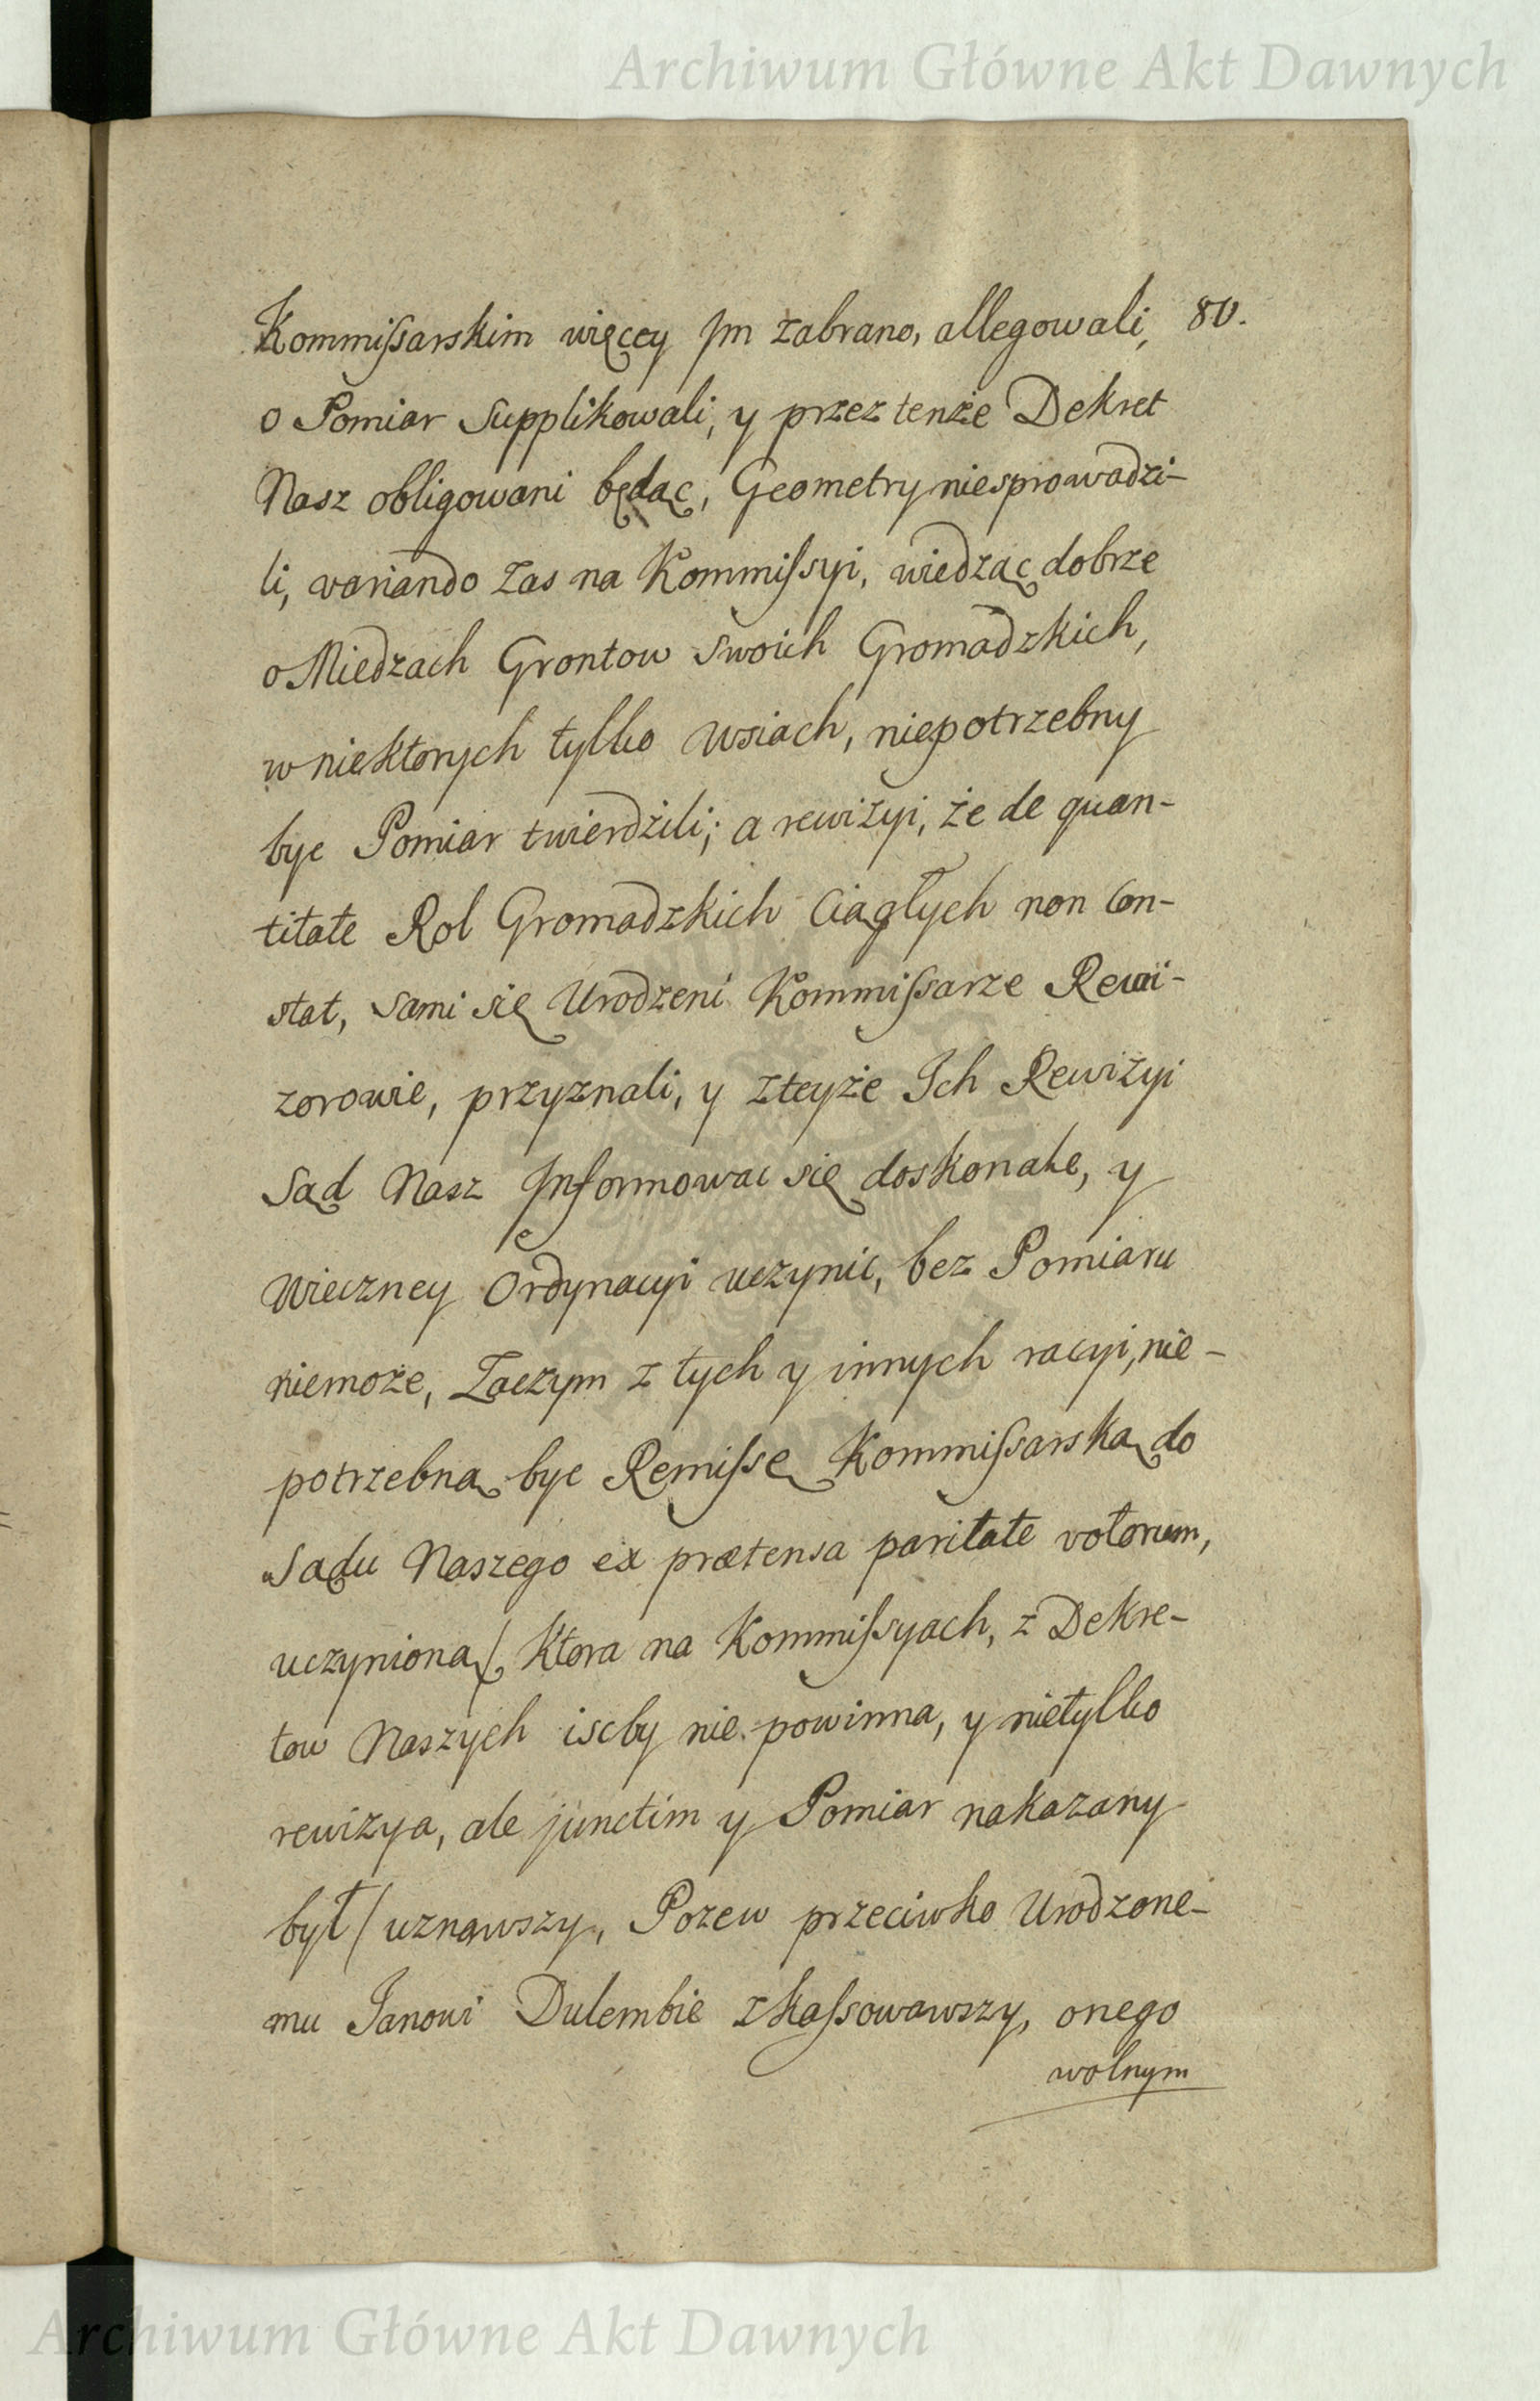 Archiwum Główne Akt Dawnych
80.
Kommiſsarskim więcey Im zabrano, allegowali,
o Pomiar Supplikowali, y przez tenże Dekret
Nasz obligowani będąc, Geometry niesprowadzi-
li, variando zas na Kommiſsyi, wiedząc dobrze
o Miedzach Grontow swoich Gromadzkich,
w niektorych tylko wsiach, niepotrzebny
byc Pomiar twierdzili; a rewizyi, że de quan-
titate Rol Gromadzkich Ciągłych non Con-
stat, sami się Urodzeni Kommiſsarze Rewi-
zorowie, przyznali, y zteyże Ich Rewizyi
Sąd Nasz Informowac się doskonale, y
Wieczney Ordynacyi uczynic, bez Pomiaru
niemoże, Zaczym z tych y innych racyi, nie-
potrzebną byc Remiſsę Kommiſsarską do
Sądu Naszego ex prætensa paritate votorum,
uczynioną/ Ktora na Kommiſsyach, z Dekre-
tow Naszych iscby nie powinna, y nietylko
rewizya, ale junctim y Pomiar nakazany
był/ uznawszy, Pozew przeciwko Urodzone-
mu Janowi Dulembie zkaſsowawszy, onego
wolnym
Archiwum Główne Akt Dawnych